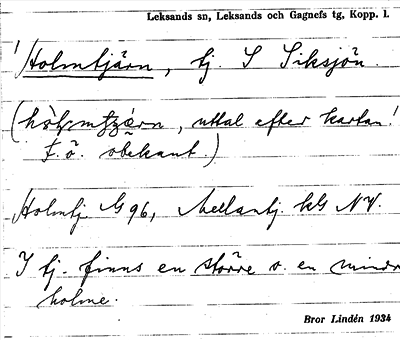 Leksands sn, Leksands och Gagnefs tg, Kopp. l.
1) Holmtjärn, tj S Siksjön.
(, uttal efter kartan!
f. ö. obekant.)
Holmtj G 96, Mellantj. kG NV.
I tj. finns en större o. en mindre
holme.
Bror Lindén 1934